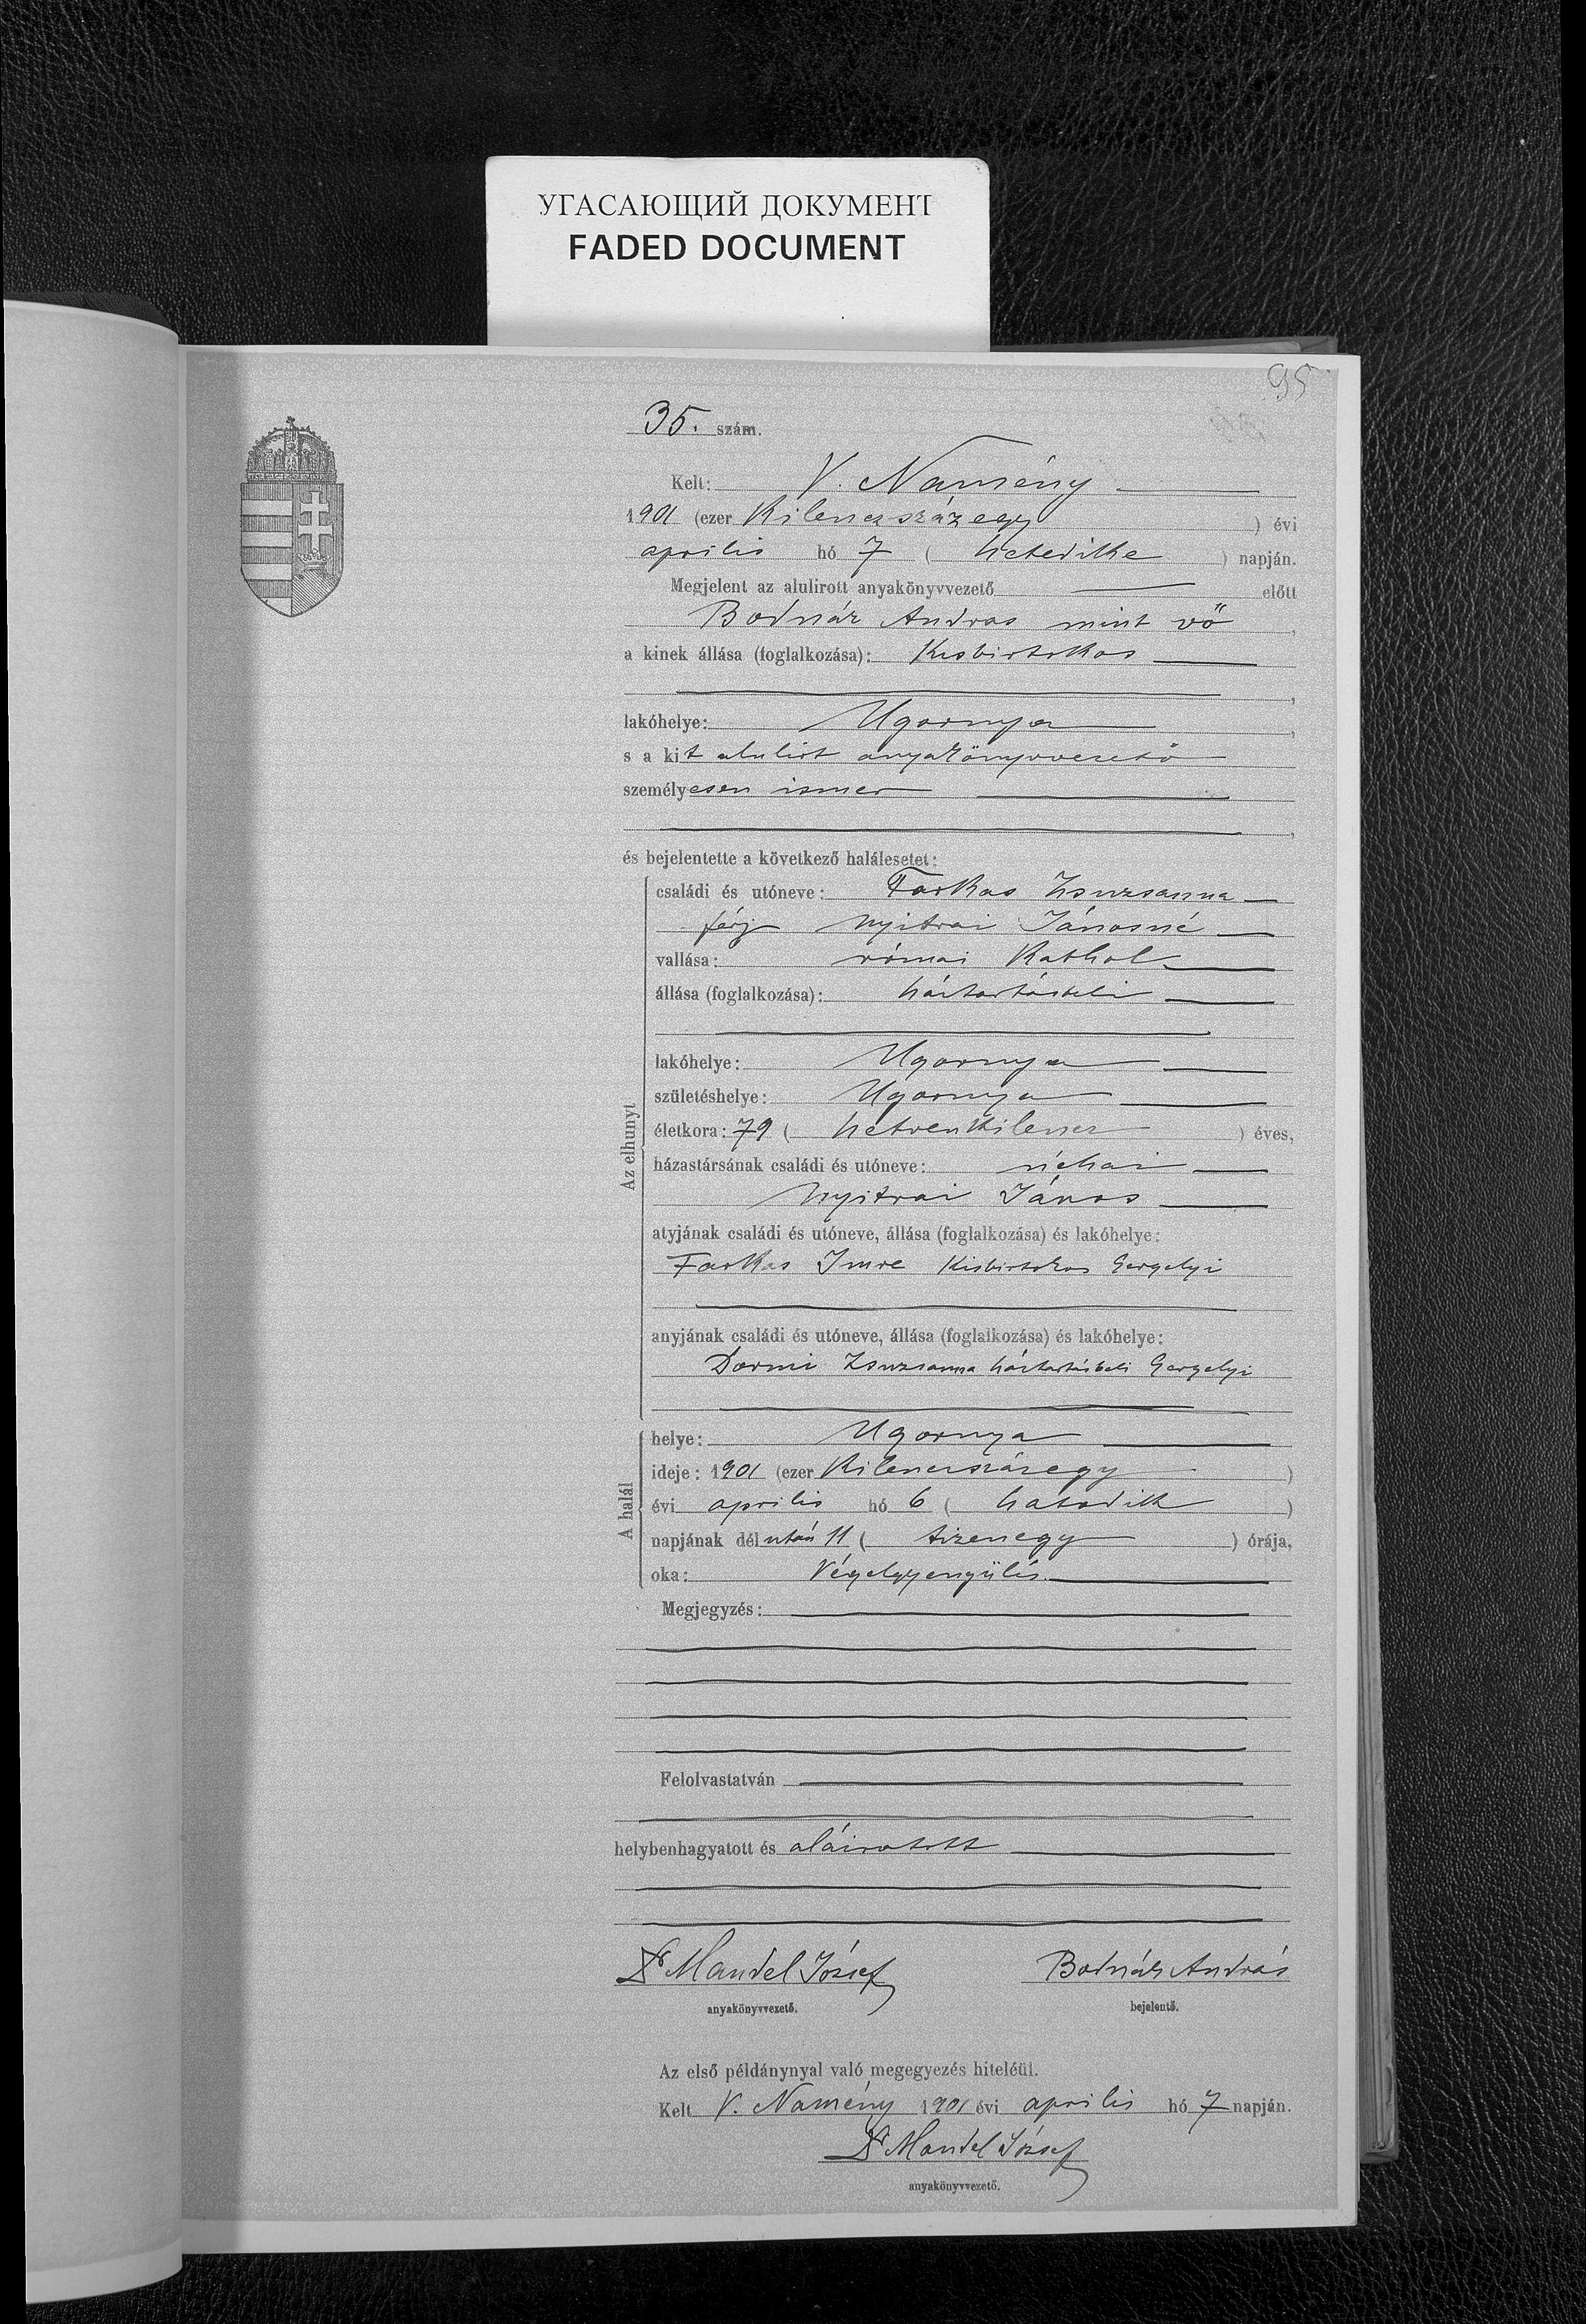 УГАСАЮЩИЙ ДОКУМЕНТ
FADED DOCUMENT
95
35. szám.
Kelt: V. Namény
1901 (ezer Kilenczszázegy ) évi
április hó 7 ( hetedike ) napján.
Megjelent az alulirott anyakönyvvezető előtt
Bodnár Andras mint vő,
a kinek állása (foglalkozása): Kisbirtokos
lakóhelye: Ugornya,
s a kit alulirt anyakönyvvezető
személyesen ismer
és bejelentette a következő halálesetet:
Az elhunyt
családi és utóneve: Farkas Zsuzsanna
férj Nyitrai Jánosné
vallása: római Kathol
állása (foglalkozása): háztartásbeli
lakóhelye: Ugornya
születéshelye: Ugornya
életkora: 79 ( hetvenkilencz ) éves,
házastársának családi és utóneve: néhai
Nyitrai János
atyjának családi és utóneve, állása (foglalkozása) és lakóhelye:
Farkas Imre Kisbirtokos Gergelyi
anyjának családi és utóneve, állása (foglalkozása) és lakóhelye:
Zsuzsanna háztartásbeli Gergelyi
A halál
helye: Ugornya
ideje: 1901 (ezer Kilenczszázegy )
évi április hó 6 ( hatodik )
napjának délután 11 ( tizenegy ) órája,
oka: Végelgyengülés.
Megjegyzés:
Felolvastatván
helybenhagyatott és aláiratott
Dr Mandel József Bodnár András
anyakönyvvezető. bejelentő.
Az első példánynyal való megegyezés hiteléül.
Kelt V. Namény 1901 évi április hó 7 napján.
Dr Mandel József
anyakönyvvezető.